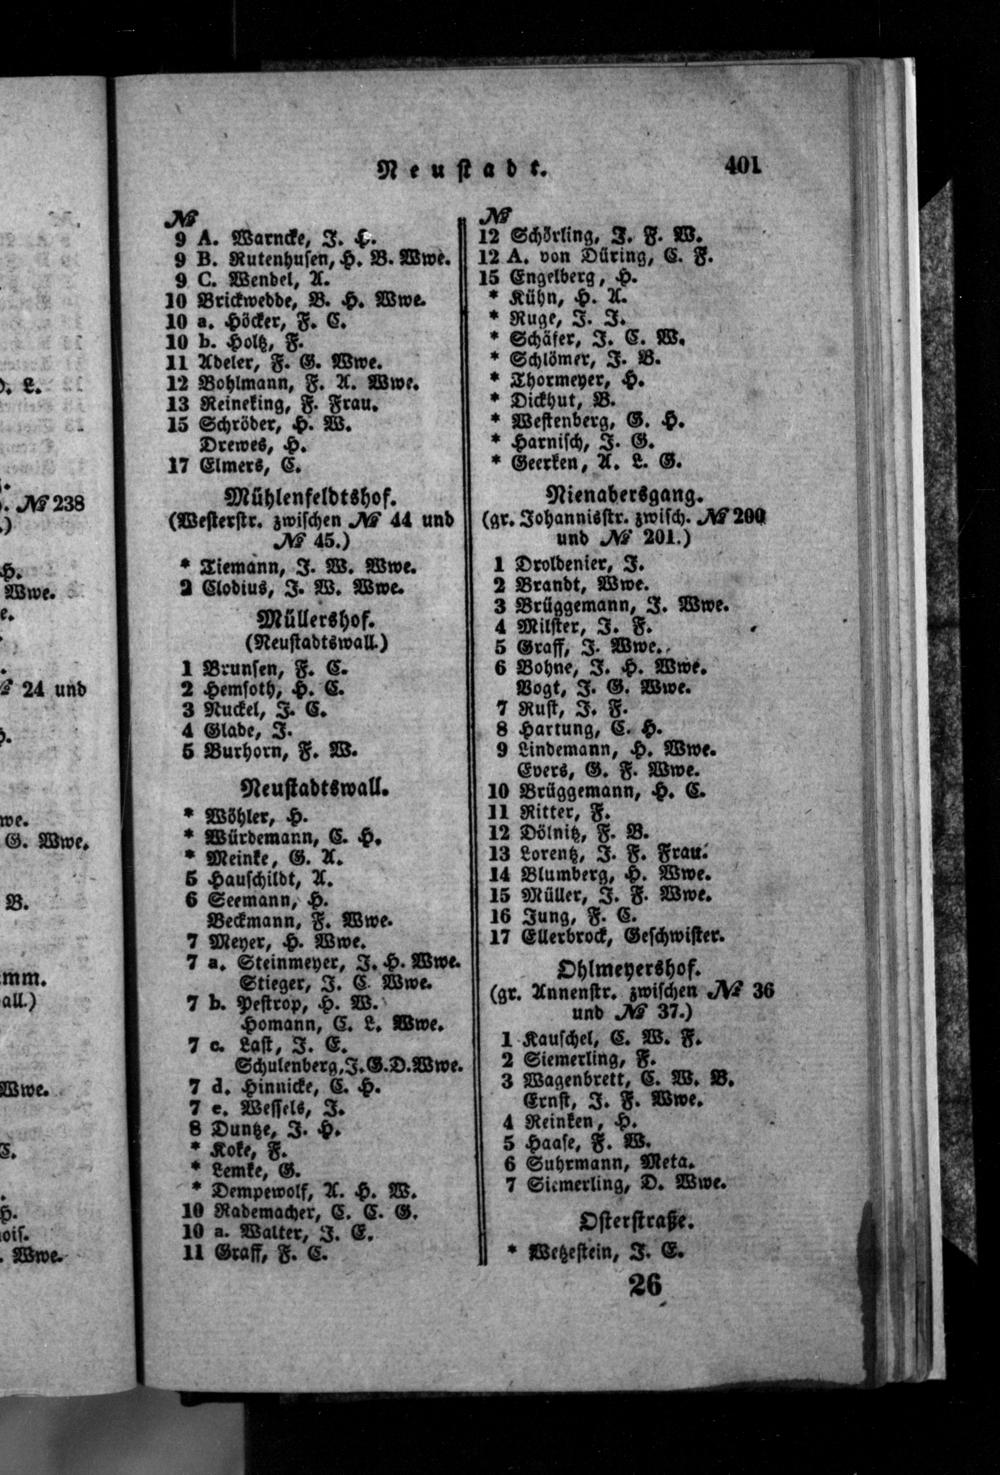 Neustadt.
401
№
9 A. Warncke, J. H.
9 B. Rutenhusen, H. B. Wwe.
9 C. Wendel, A.
10 Brickwedde, B. H. Wwe.
10 a. Höcker, F. C.
10 b. Holtz, F.
11 Adeler, F. G. Wwe.
12 Bohlmann, F. A. Wwe.
13 Reineking, F. Frau.
15 Schröder, H. W.
Drewes, H.
17 Elmers, C.
Mühlenfeldtshof.
(Westerstr. zwischen № 44 und
№ 45.)
* Tiemann, J. W. Wwe.
2 Clodius, J. W. Wwe.
Müllershof.
(Neustadtswall.)
1 Brunsen, F. C.
2 Hemsoth, H. C.
3 Nuckel, J. C.
4 Glade, J.
5 Burhorn, F. W.
Neustadtswall.
* Wöhler, H.
* Würdemann, C. H.
* Meinke, G. A.
5 Hauschildt, A.
6 Seemann, H.
Beckmann, F. Wwe.
7 Meyer, H. Wwe.
7 a. Steinmeyer, J. H. Wwe.
Stieger, J. C. Wwe.
7 b. Pestrop, H. W.
Homann, C. L. Wwe.
7 c. Last, J. E.
Schulenberg, J. G. D. Wwe.
7 d. Hinnicke, C. H.
7 e. Wessels, J.
8 Duntze, J. H.
* Koke, F.
* Lemke, G.
* Dempewolf, A. H. W.
10 Rademacher, C. C. G.
10 a. Walter, J. E.
11 Graff, F. C.
№
12 Schörling, J. F. W.
12 A. von Düring, C. F.
15 Engelberg, H.
* Kühn, H. A.
* Ruge, J. J.
* Schäfer, J. C. W.
* Schlömer, J. B.
* Thormeyer, H.
* Dickhut, B.
* Westenberg, G. H.
* Harnisch, J. G.
* Geerken, A. L. G.
Nienabersgang.
(gr. Johannisstr. zwisch. № 200
und № 201.)
1 Droldenier, J.
2 Brandt, Wwe.
3 Brüggemann, J. Wwe.
4 Milster, J. F.
5 Graff, J. Wwe.
6 Bohne, J. H. Wwe.
Vogt, J. G. Wwe.
7 Rust, J. F.
8 Hartung, C. H.
9 Lindemann, H. Wwe.
Evers, G. F. Wwe.
10 Brüggemann, H. C.
11 Ritter, F.
12 Dölnitz, F. B.
13 Lorentz, J. F. Frau.
14 Blumberg, H. Wwe.
15 Müller, J. F. Wwe.
16 Jung, F. C.
17 Ellerbrock, Geschwister.
Ohlmeyershof.
(gr. Annenstr. zwischen № 36
und № 37.)
1 Kauschel, C. W. F.
2 Siemerling, F.
3 Wagenbrett, C. W. B.
Ernst, J. F. Wwe.
4 Reinken, H.
5 Haase, F. W.
6 Suhrmann, Meta.
7 Siemerling, D. Wwe.
Osterstraße.
* Wetzestein, J. E.
26